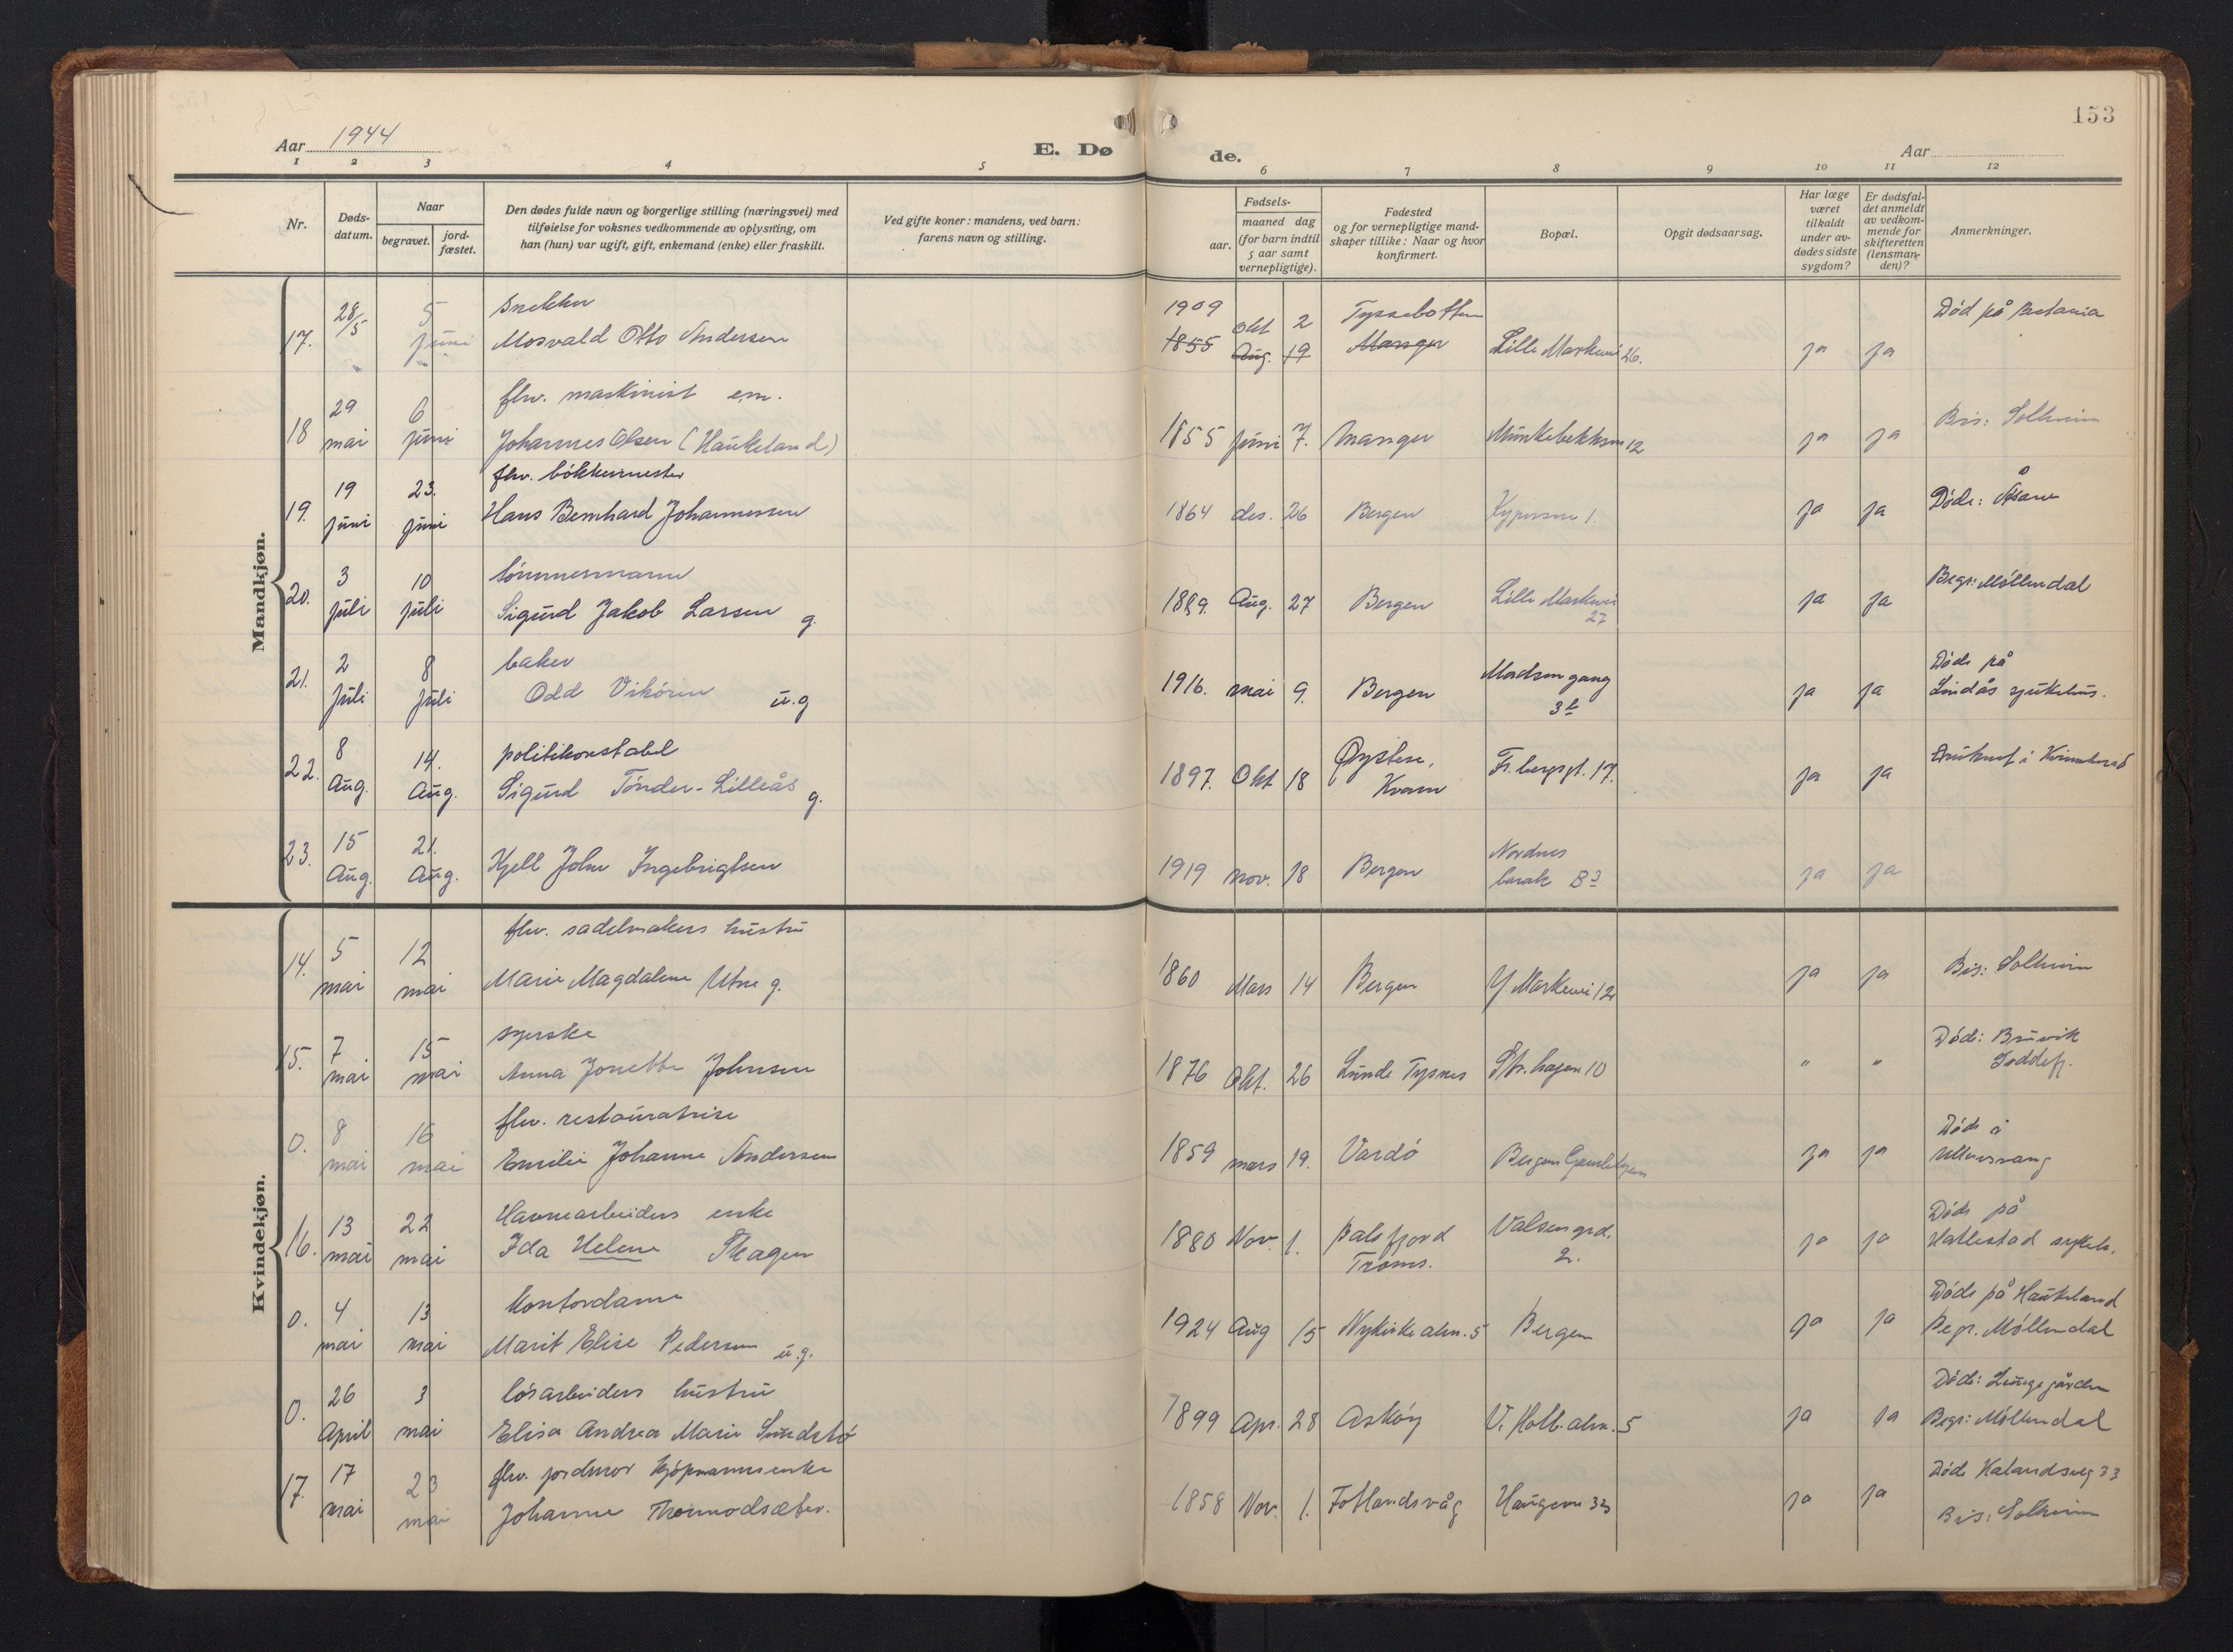 153
Aar 1944
E. Dø de.
Aar
1 2 3 4 5 6 7 8 9 10 11 12
Nr.
Døds-
datum.
Naar
begravet.
jord-
fæstet.
Den dødes fulde navn og borgerlige stilling (næringsvei) med
tilføielse for voksnes vedkommende av oplysning, om
han (hun) var ugift, gift, enkemand (enke) eller fraskilt.
Ved gifte koner: mandens, ved barn:
farens navn og stilling.
Fødsels-
aar.
maaned dag
(for barn indtil
5 aar samt
vernepligtige).
Fødested
og for vernepligtige mand-
skaper tillike: Naar og hvor
konfirmert.
Bopæl.
Opgit dødsaarsag.
Har læge
været
tilkaldt
under av-
dødes sidste
sygdom?
Er dødsfal-
det anmeldt
av vedkom-
mende for
skifteretten
(lensman-
den)?
Anmerkninger.
Mandkjøn.
28/5 5 snekker 1909 okt 2 Tyssebotten Død på Betania
17. juni Mosvald Otto Andersen 1855 Aug. 19 Manger Lille Markevei 26. ja ja
29 6 fhv. maskinist em.
18 mai juni Johannes Olsen (Haukeland) 1855 juni 7. Manger Munkebekken 12 ja ja Bis: Solheim
19 23. fhv. bøkkermester
19. juni juni Hans Bernhard Johannessen 1864 des. 26 Bergen 1. ja ja Døde: Åsane
3 10 tømmermann
20. juli juli Sigurd Jakob Larsen g. 1889. Aug. 27 Bergen Lille Markevei 27 ja ja Begr: Møllendal
2 8 baker Døde på
21. Juli juli Odd Vikøren u.g 1916. mai 9. Bergen Madsengang 3b ja ja Lindås sjukehus.
8 14. politikonstabel Øystese,
22. Aug. Aug. Sigurd Tønder-Lilleås g. 1897. Okt 18 Kvam Fr. bergsgt. 17. ja ja i
15 21. Nordnes
23. Aug. Aug. Kjell John Ingebrigtsen 1919 nov. 18 Bergen barak B3 ja ja
Kvindekjøn.
5 12 fhv. sadelmakers hustru
14. mai mai Marie Magdalene Utne g. 1860 Mars 14 Bergen Y Markevei 12 ja ja Bis: Solheim
7 15 syerske Død: Bruvik
15. mai mai Anna Jonette Johnsen 1876 Okt. 26 Lunde Tysnes Str. hagen 10 " "
8 16 fhv. restauratrise Døde i
0. mai mai Emilie Johanne Andersen 1859 mars 19. Vardø Bergens Gamlehjem ja ja Ullensvang
13 22 Havnearbeiders enke Døde på
16. mai mai Ida Helene Skagen 1880 Nov. 1. Balsfjord Troms. Valsengrd. 2. ja ja Hatlestad sykeh.
4 13 Kontordame Døde på Haukeland
0. mai mai Marit Elise Pedersen u.g. 1924 Aug 15 Nykirkealm. 5 Bergen ja ja Begr. Møllendal
26 3 løsarbeiders hustru Døde: Lungegården
0. April mai Elisa Andrea Marie Sundstø 1899 Apr. 28 Askøy V. Holb. alm. 5 ja ja Begr: Møllendal
17 23 fhv. jordmor kjøpmannsenke Døde Kalandsveg 33
17. mai mai Johanne Thormodsæter. 1858 Nov. 1. Fotlandsvåg Haugen 33 ja ja Bis: Solheim